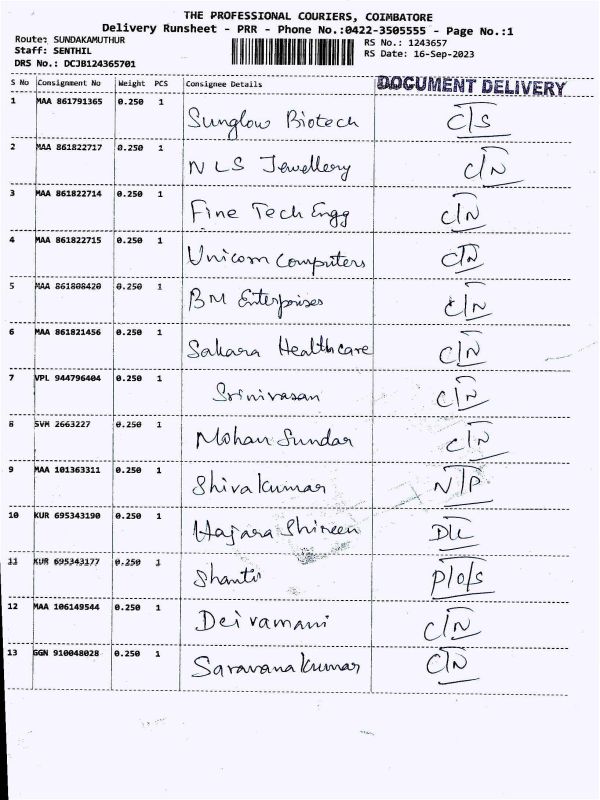 THE PROFESSIONAL COURIERS, COIMBATORE
Delivery Runsheet - PRR - Phone No.:0422-3505555 - Page No.:1
Route: SUNDAKAMUTHUR RS No.: 1243657
Staff: SENTHIL RS Date: 16-Sep-2023
DRS No.: DCJB124365701
S No Consignment No Weight PCS Consignee Details DOCUMENT DELIVERY
1 MAA 861791365 0.250 1 Sunglow Biotech C/S
2 MAA 861822717 0.250 1 NLS Jewellery C/N
3 MAA 861822714 0.250 1 Fine Tech Engg C/N
4 MAA 861822715 0.250 1 Unicorn Computers C/N
5 MAA 861808420 0.250 1 BM Enterprises C/N
6 MAA 861821456 0.250 1 Sahara Healthcare C/N
7 VPL 944796404 0.250 1 Srinivasan C/N
8 SVM 2663227 0.250 1 Mohan Sundar C/N
9 MAA 101363311 0.250 1 Shivakumar N/P
10 KUR 695343190 0.250 1 Hajara Shireen D/L
11 KUR 695343177 0.250 1 Shanti P/O/S
12 MAA 106149544 0.250 1 Deivamani C/N
13 GGN 910048028 0.250 1 Saravanakumar C/N